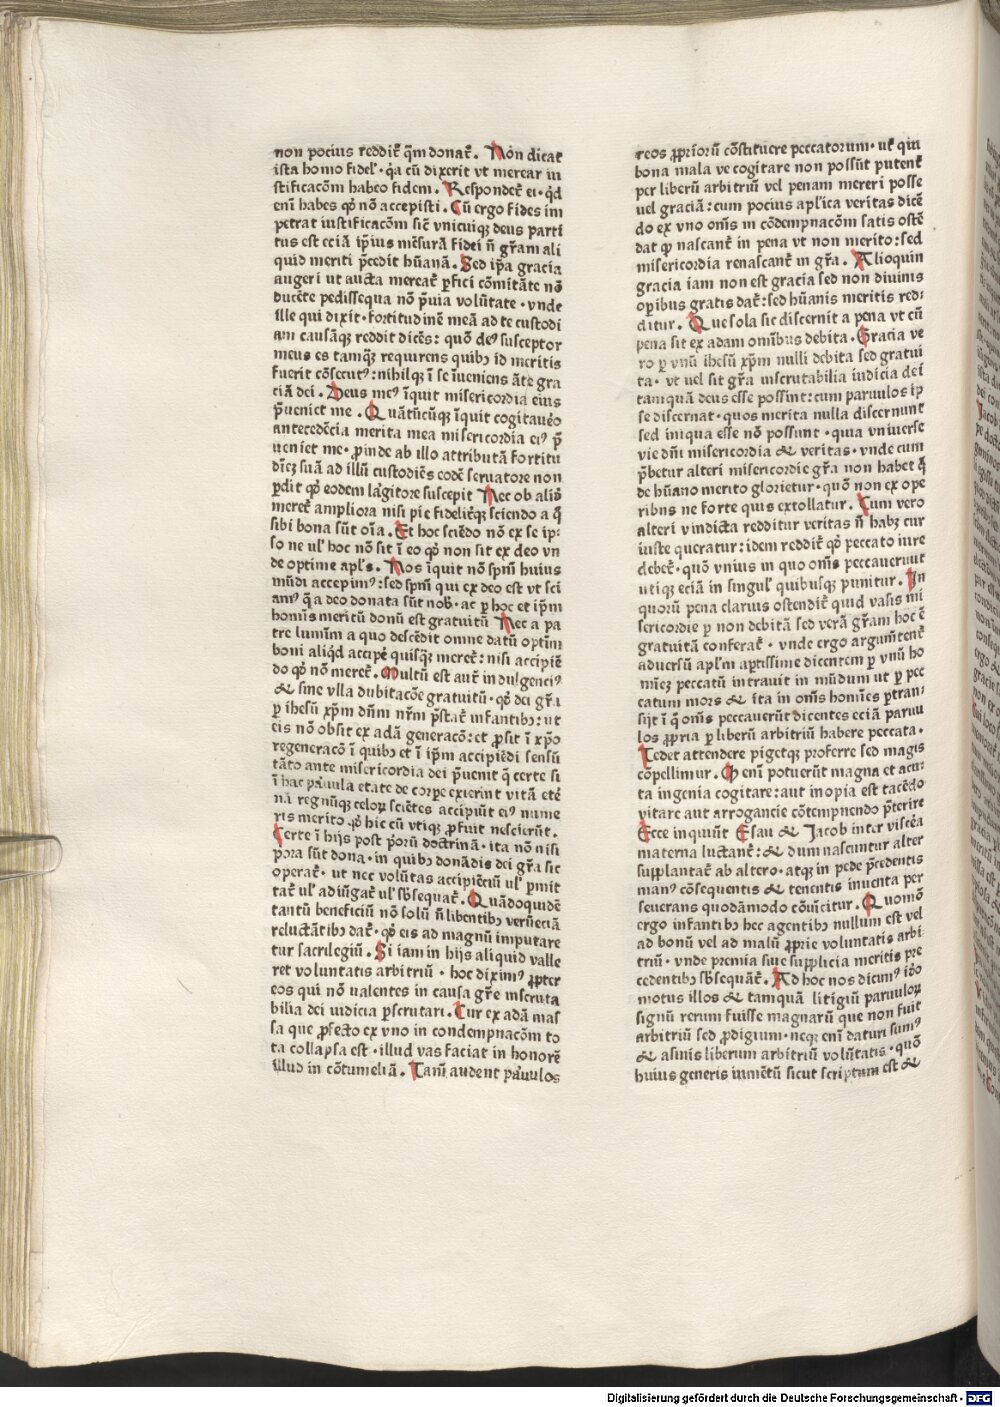 non pocius reddit᷑ q̄m donat᷑. Non dicat
ista homo fidel'· q̇a cū dixerit vt merear iu
stificacōm habeo fidem. Respondet᷑ ei· q̇d
eni᷑ habes qd' nō accepisti. Cū ergo fides im
petrat iustificacōm sic̄ vnicuiqꝫ deus parti
tus est eciā ip̄ius mēsurā fidei n̄ gr̄am ali
quid meriti p̄cedit hūanā. Sed ip̄a gracia
augeri ut aucta mereat᷑ ꝑfici cōmitāte nō
ducēte pedissequa nō p̄uia volūtate· vnde
ille qui dixit· fortitudinē meā ad te custodi
am causāqꝫ reddit dicēs: quō deꝰ susceptor
meus es tamqꝫ requirens quibꝫ id meritis
fuerit cōsecutꝰ: nihilqꝫ ī se īueniens āte gra
ciā dei. Deus meꝰ īquit misericordia eius
p̄ueniet me. Quātūcūqꝫ īquit cogitauero
antecedēcia merita mea misericordia eiꝰ p̄
ueniet me· proinde ab illo attributā fortitu
dīeꝫ suā ad illū custodiēs eodē seruatore non
ꝑdit qd' eodem largitore suscepit Nec ob aliꝰ
meret᷑ ampliora nisi pie fideliterqꝫ sciendo a q̄
sibi bona sūt oīa. Et hoc sciēdo nō ex se ip-
so ne ul' hoc nō sit ī eo qd' non sit ex deo vn
de optime apl's. Nos īquit nō spm̄ huius
mūdi accepimꝰ: sed spm̄ qui ex deo est vt sci
amꝰ q̄ a deo donata sūt nob'· ac ꝑ hoc et ip̄m
homīs meritū donū est gratuitū Nec a pa
tre lumīm a quo descēdit omne datū optīm
boni aliq̇d accipe᷑ quisqꝫ meret᷑: nisi accipiē
do qd' nō meret᷑. Multū est aut᷑ indulgenciꝰ
& sine vlla dubitacōe gratuitū· qd' dei gr̄a
ꝑ ihesū xp̄m dn̄m nr̄m p̄stat᷑ infantibꝫ: ut
eis nō obsit ex adā generacō: et ꝓsit ī xp̄o
regeneracō ī quibꝫ et ī ip̄m accipiēdi sensū
tāto ante misericordia dei p̄uenit q̄ certe si
ī hac paruula etate de corpe exierint vitā etē
nā regnūqꝫ celoꝝ sciētes accipiūt eiꝰ mune
ris merito qd' hic cū vtiqꝫ ꝓfuit nescierūt.
Certe ī hijs post ꝓorū doctrinā· ita nō nisi
pora sūt dona· in quibꝫ donādis dei gr̄a sic
operat᷑· ut nec volūtas accipiēciū ul' ꝑmit
tat᷑ ul' adiūgat᷑ ul' sb̄sequat᷑. Quādoquidē
tantū beneficiū nō solū n̄ libentibꝫ verūeciā
reluctātibꝫ dat᷑· qd' eis ad magnū imputare
tur sacrilegiū. Si iam in hijs aliquid valle
ret voluntatis arbitriū· hoc diximꝰ ꝓpter
eos qui nō ualentes in causa gr̄e inscruta
bilia dei iudicia ꝑscrutari. Cur ex adā mas
sa que ꝓfecto ex vno in condempnacōm to
ta collapsa est· illud vas faciat in honorē
illud in cōtumeliā. Tam̄ audent paruulos
reos ꝓpriorū cōstituere peccatorum· ut᷑ qui
bona mala ve cogitare non possūt putent᷑
per liberū arbitriū vel penam mereri posse
uel graciā: cum pocius apl'ica veritas dicē
do ex vno om̄s in cōdempnacōm satis ostē
dat qd' nascant᷑ in pena vt non merito: sed
misericordia renascant᷑ in gr̄a. Alioquin
gracia iam non est gracia sed non diuinis
opibus gratis dat᷑: sed hūanis meritis red-
ditur. Que sola sic discernit a pena vt cū
pena sit ex adam omībus debita. Gracia ve
ro ꝑ vnū ihesū xp̄m nulli debita sed gratui
ta· vt uel sit gr̄a inscrutabilia iudicia dei
tamquā deus esse possint: cum paruulos ip̄
se discernat· quos merita nulla discernunt
sed iniqua esse nō possunt· quia vniuerse
vie dn̄i misericordia & veritas· vnde cum
p̄betur alteri misericordie gr̄a non habet q̄
de hūano merito glorietur· quō non ex ope
ribus ne forte quis extollatur. Cum vero
alteri vindicta redditur veritas n̄ habꝫ cur
iuste queratur: idem reddit᷑ qd' peccato iure
debet᷑· quō vnius in quo om̄s peccauerunt
utiqꝫ eciā in singul' quibusqꝫ punitur. In
quorū pena clarius ostendit᷑ quid vasis mi
sericordie ꝑ non debitā sed verā gr̄am hoc ē
gratuitā conferat᷑· vnde ergo argum̄tent᷑
aduersū apl'm aptissime dicentem ꝑ vnū ho
mīeꝫ peccatū intrauit in mūdum ut ꝑ pec
catum mors & ita in om̄s homīes ꝑtran-
sijt ī q̄ om̄s peccauerūt dicentes eciā paruu
los ꝓpria ꝑ liberū arbitriū habere peccata.
Tedet attendere pigetqꝫ proferre sed magis
copellimur. Qd' enī potuerūt magna et acu-
ta ingenia cogitare: aut inopia est tacēdo
vitare aut arrogancie cōtempnendo p̄terire
Ecce inquiūt Esau & Jacob inter viscēa
materna luctant᷑: & dum nascuntur alter
supplantat᷑ ab altero· atqꝫ in pede p̄cedentis
manꝰ cōsequentis & tenentis inuenta per
seuerans quodāmodo cōuīcitur. Quomō
ergo infantibꝫ hec agentibꝫ nullum est vel
ad bonū vel ad malū ꝓprie voluntatis arbi-
triū· vnde premia siue supplicia meritis pre
cedentibꝫ sb̄sequāt᷑. Ad hoc nos dicimꝰ ido
motus illos & tamquā litigiū paruuloꝝ
signū rerum fuisse magnarū que non fuit
arbitriū sed ꝓdigium· neqꝫ enī daturi sumꝰ
& asinis liberum arbitriū volūtatis· quō
huius generis iumētū sicut scriptum est &
Digitalisierung gefördert durch die Deutsche Forschungsgemeinschaft - DFG